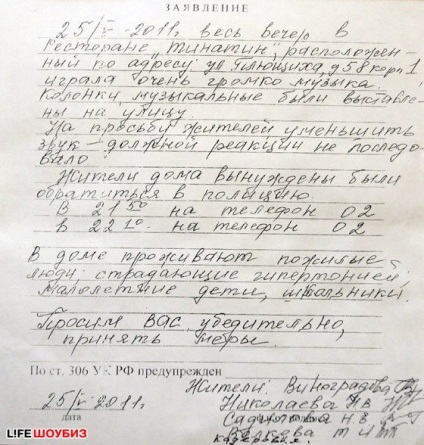 ЗАЯВЛЕНИЕ
25/V-2011г. весь вечер в
ресторане "Тинатин", расположен-
ный по адресу ул. Плющиха, д 58 корп 1
играла очень громко музыка.
Колонки, музыкальные были выставле-
ны на улицу.
На просьбу жителей уменьшить
звук - должной реакции не последо-
вало.
Жители дома вынуждены были
обратиться в полицию.
В 21 50 на телефон 02
в 22 10 на телефон 02
В доме проживают пожилые
люди страдающие гипертонией,
малолетние дети, школьники.
Просим Вас убедительно,
принять меры.
По ст. 306 УК РФ предупрежден
Жители: Виноградова
25/V-2011г. Николаева Н В
дата
LIFE ШОУБИЗ